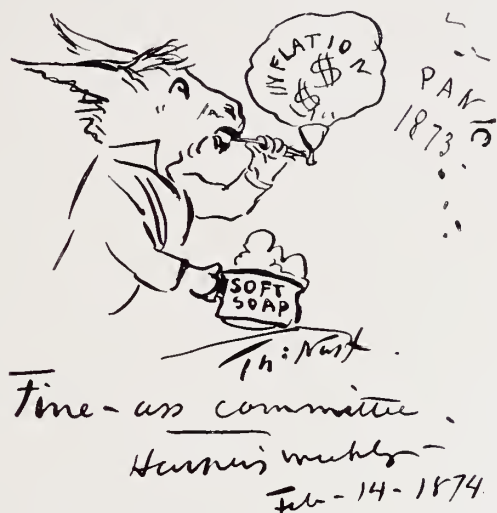 INFLATION
$
$
PANIC
1873
SOFT
SOAP
Th: Nast.
Fine-ass committee
Harper's weekly-
Feb-14-1874.